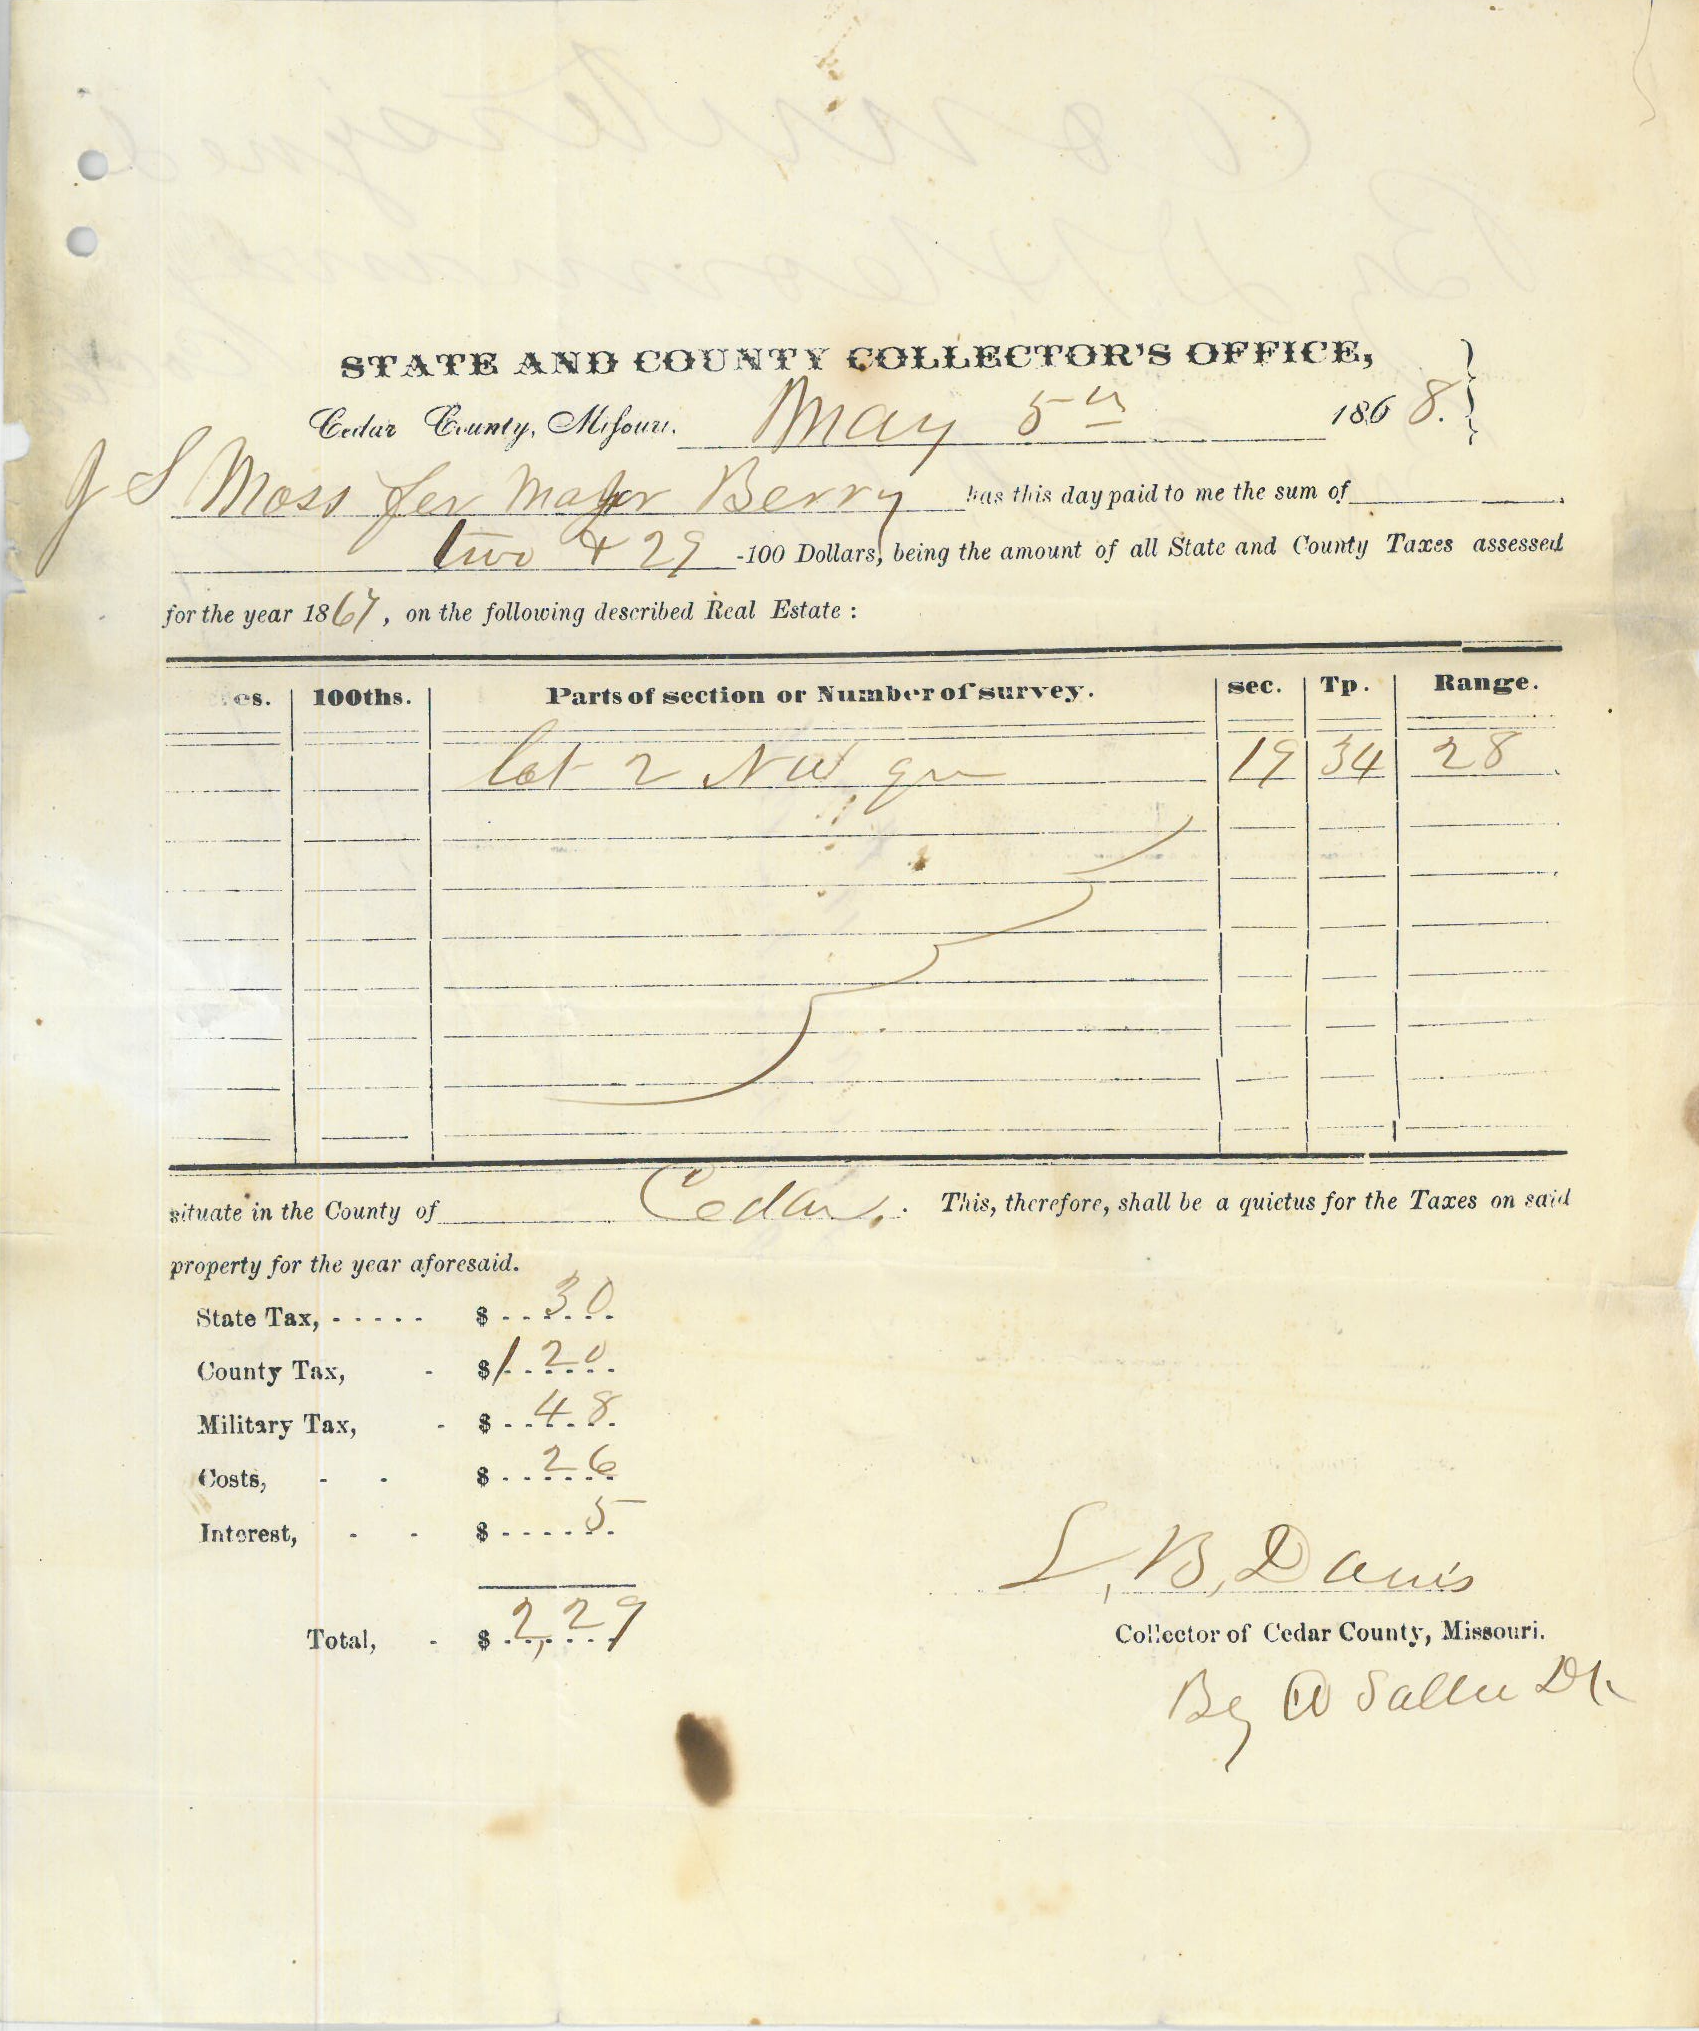 STATE AND COUNTY COLLECTOR'S OFFICE,
Cedar County, Missouri. May 5th 1868.
J S Moss for Major Berry has this day paid to me the sum of
two & 29 -100 Dollars, being the amount of all State and County Taxes assessed
for the year 1867, on the following described Real Estate :
es. 100ths. Parts of section or Number of survey. sec. Tp. Range.
lot 2 NW qr 19 34 28
situate in the County of Cedar. This, therefore, shall be a quietus for the Taxes on said
property for the year aforesaid.
State Tax, - - - - - $ 30
County Tax, - $ 1 20
Military Tax, - $ 48
Costs, - - $ 26
Interest, - - $ 5
Total, - $ 2,29
L, B, Davis
Collector of Cedar County, Missouri.
By W